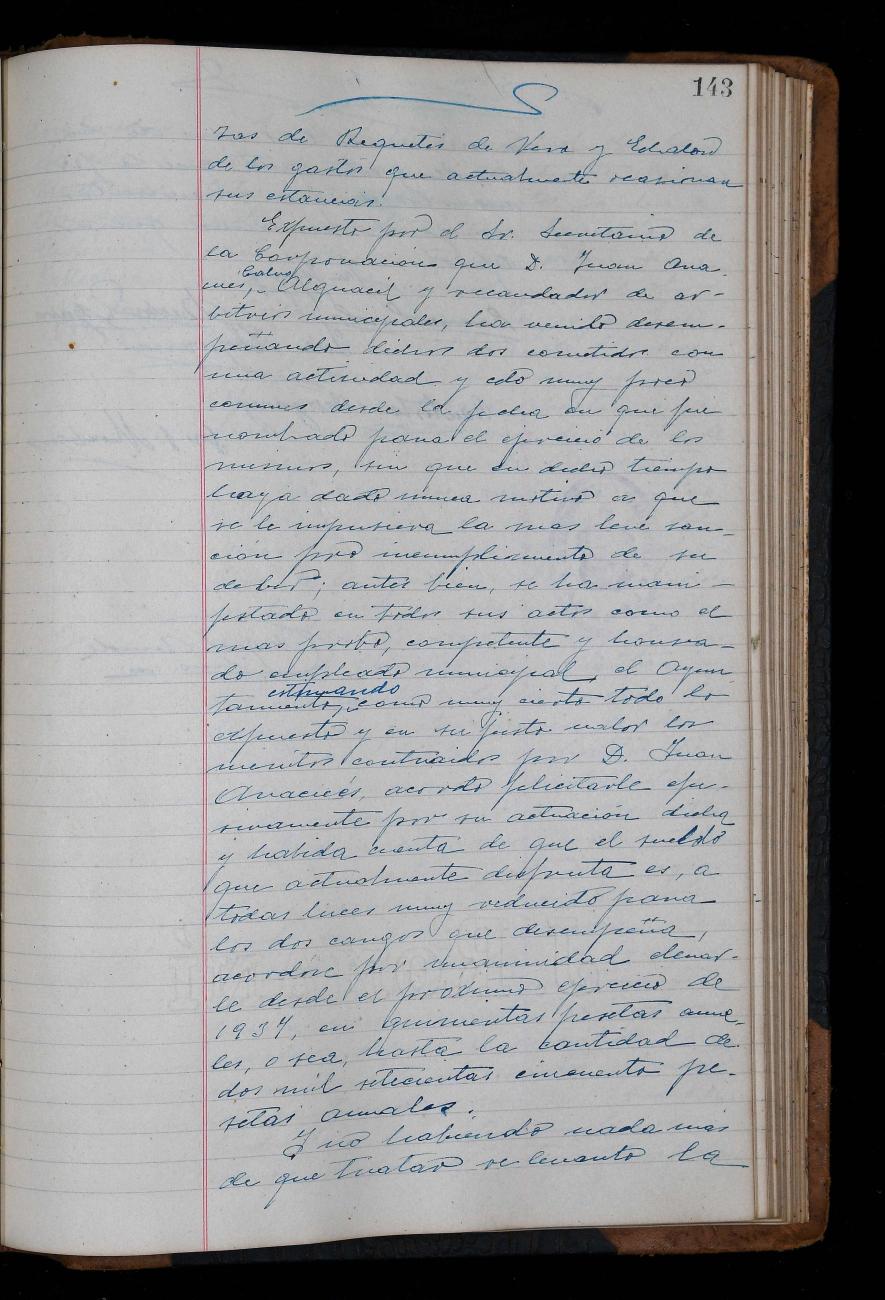 143
zas de Requetés de Vera y Echalar
de los gastos que actualmente ocasionan
sus estancias.
Expuesto por el Sr. Secretario de
la Corporación que D. Juan Ana
Calvo
Alguacil y recaudador de ar-
bitrios municipales, ha venido desem-
peñando dichos dos cometidos con
una actividad y celo muy poco
comunes desde la fecha en que fue
nombrado para el ejercicio de los
mismos, sin que en dicho tiempo
haya dado nunca motivo a que
se le impusiera la mas leve san-
ción por incumplimiento de su
deber; antes bien, se ha mani-
festado en todos sus actos como el
mas probo, competente y honra-
do empleado municipal, el Ayun-
estimando
tamiento, como muy cierto todo lo
expuesto y en su justo valor los
meritos contraidos por D. Juan
acordó felicitarle efu-
sivamente por su actuación dicha
y habida cuenta de que el sueldo
que actualmente disfruta es, a
todas luces muy reducido para
los dos cargos que desempeña,
acordóse por unanimidad elevar-
le desde el próximo ejercicio de
1937, en quinientas pesetas anua-
les, o sea, hasta la cantidad de
dos mil setecientas cincuenta pe-
setas anuales.
Y no habiendo nada mas
de que tratar se levanto la